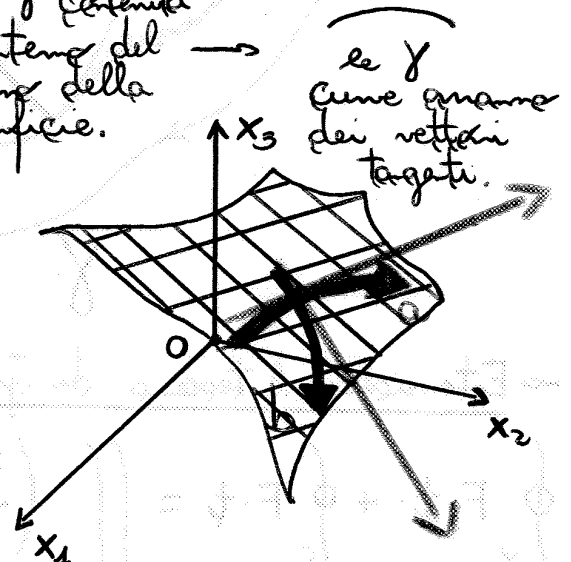 γ contenuta
del
della
le γ
curve avranno
dei vettori
tangenti.
x3
a
O
b
x2
x1